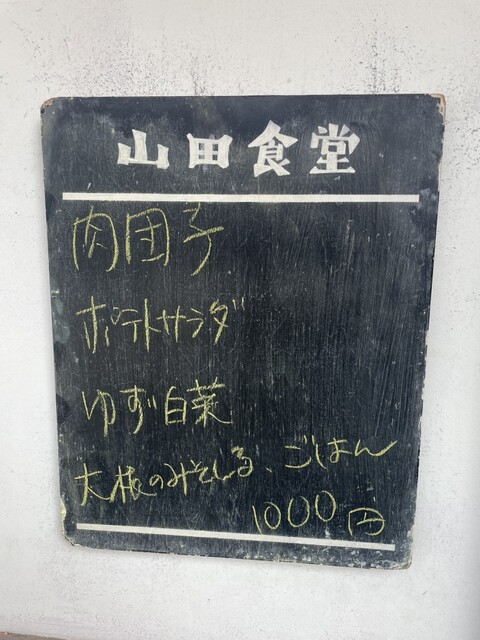 山田食堂
肉団子
ポテトサラダ
ゆず白菜
大根のみそしる、ごはん
1000円